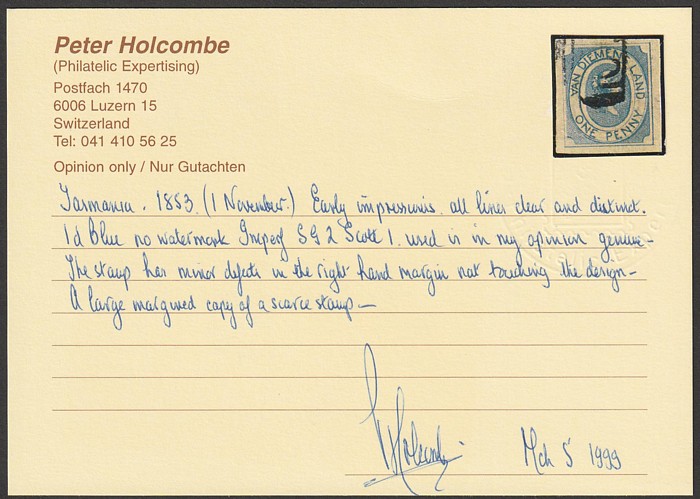 Peter Holcombe
(Philatelic Expertising)
Postfach 1470
6006 Luzern 15
Switzerland
Tel: 041 410 56 25
Opinion only / Nur Gutachten
VAN DIEMENS LAND
ONE PENNY
Tasmania. 1853. (1 November.) Early impressions. all lines clear and distinct.
1d Blue no watermark Imperf SG 2 Scott 1. used is in my opinion genuine—
The stamp has minor defects in the right hand margin not touching the design—
A large margined copy of a scarce stamp—
P Holcombe
Mch 5 1999